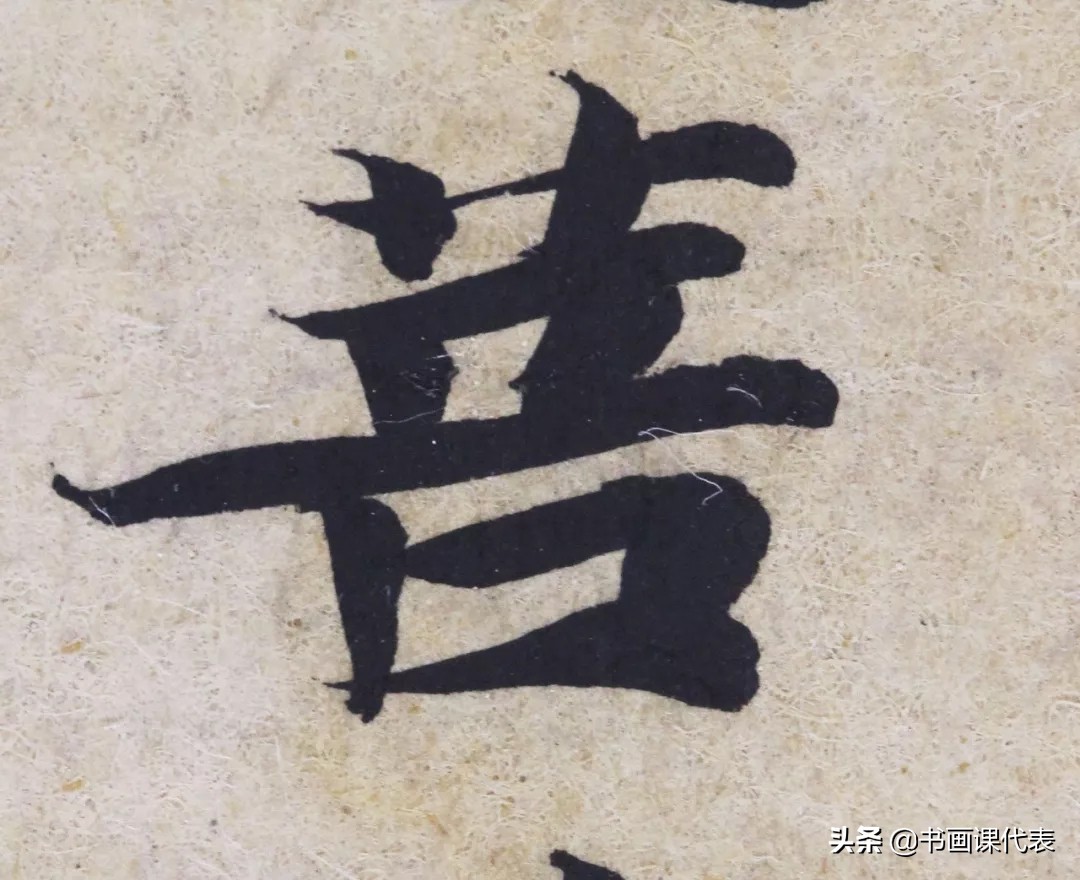 菩
头条 @书画课代表